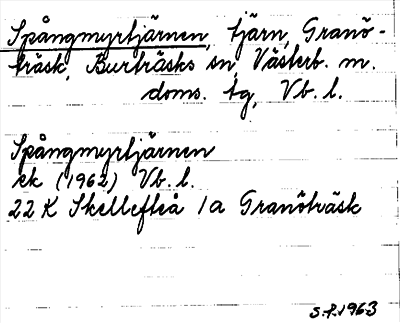 Spångmyrtjärnen, tjärn, Granö-
träsk, Burträsks sn, Västerb. m.
doms. tg, Vb. l.
Spångmyrtjärnen
ek (1962) Vb. l.
22 K Skellefteå 1a Granöträsk
S.F. 1963